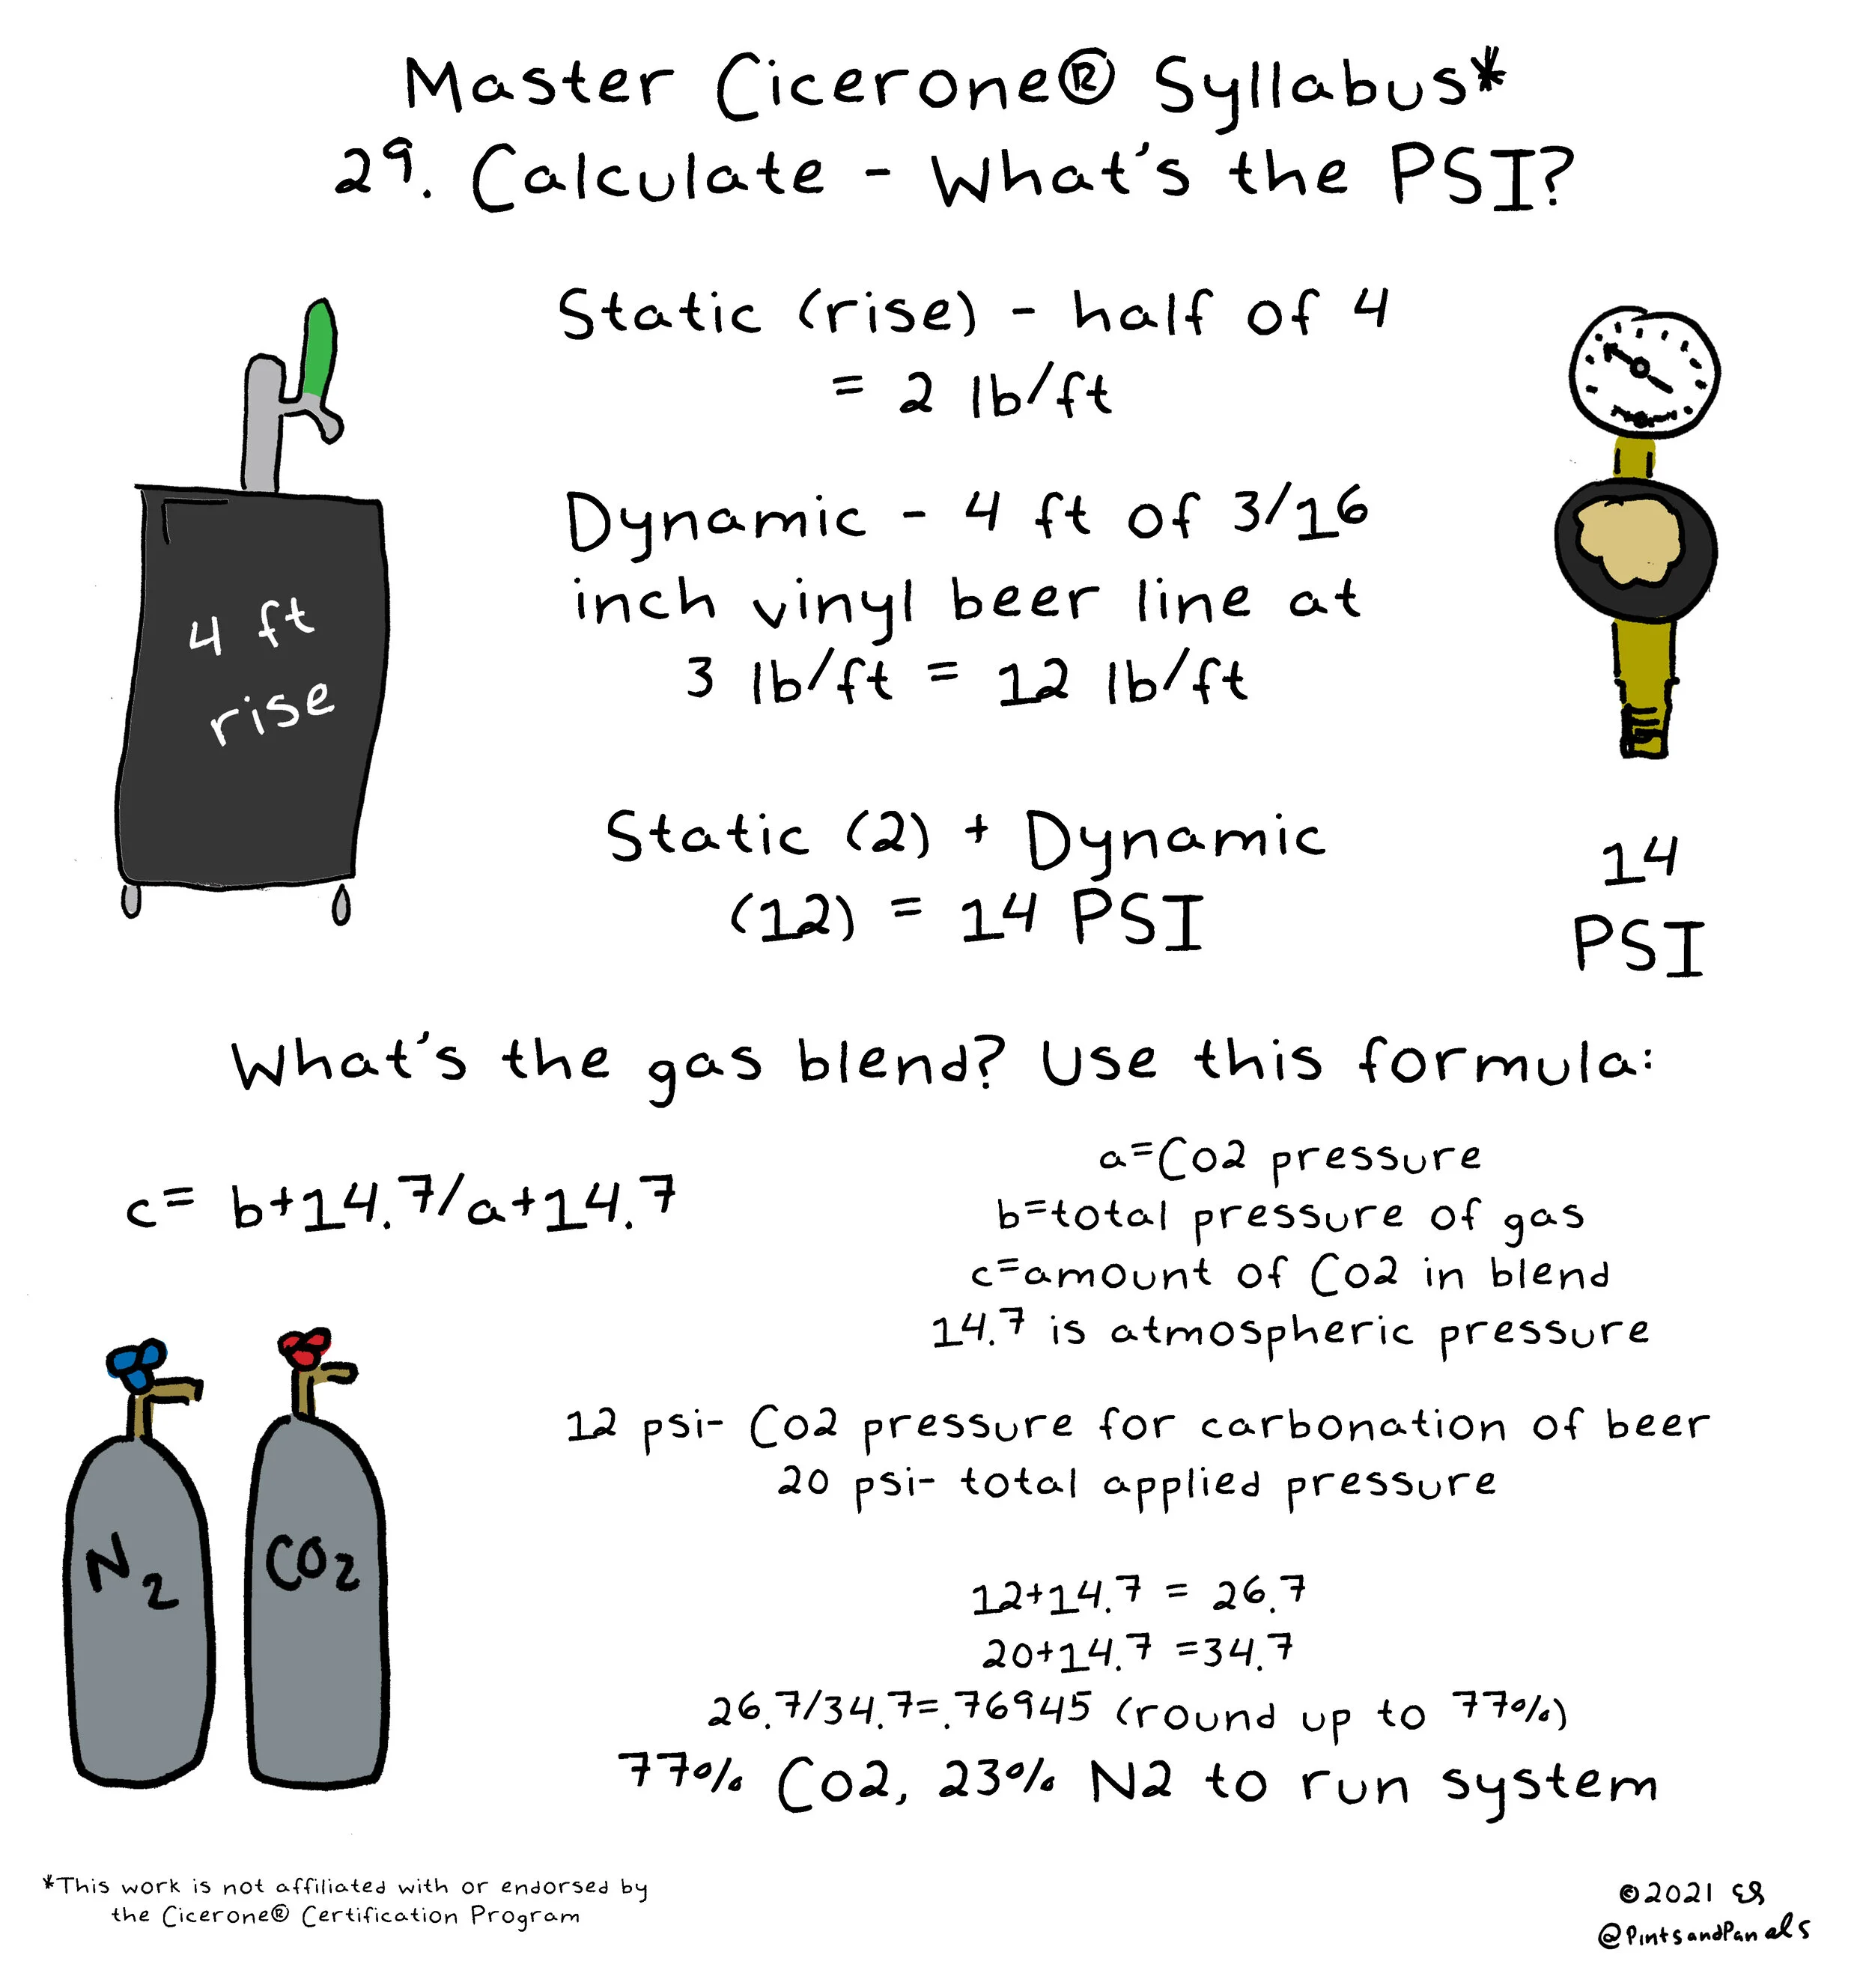 Master Cicerone® Syllabus*
29. Calculate - What's the PSI?
Static (rise) - half of 4
= 2 lb/ft
4 ft
rise
Dynamic - 4 ft of 3/16
inch vinyl beer line at
3 lb/ft = 12 lb/ft
Static (2) + Dynamic
(12) = 14 PSI
14
PSI
What's the gas blend? Use this formula:
c= b+14.7/a+14.7
a=Co2 pressure
b=total pressure of gas
c=amount of Co2 in blend
14.7 is atmospheric pressure
N2
CO2
12 psi- Co2 pressure for carbonation of beer
20 psi- total applied pressure
12+14.7 = 26.7
20+14.7 =34.7
26.7/34.7=.76945 (round up to 77%)
77% Co2, 23% N2 to run system
*This work is not affiliated with or endorsed by
the Cicerone® Certification Program
©2021 ES
@PintsandPanels